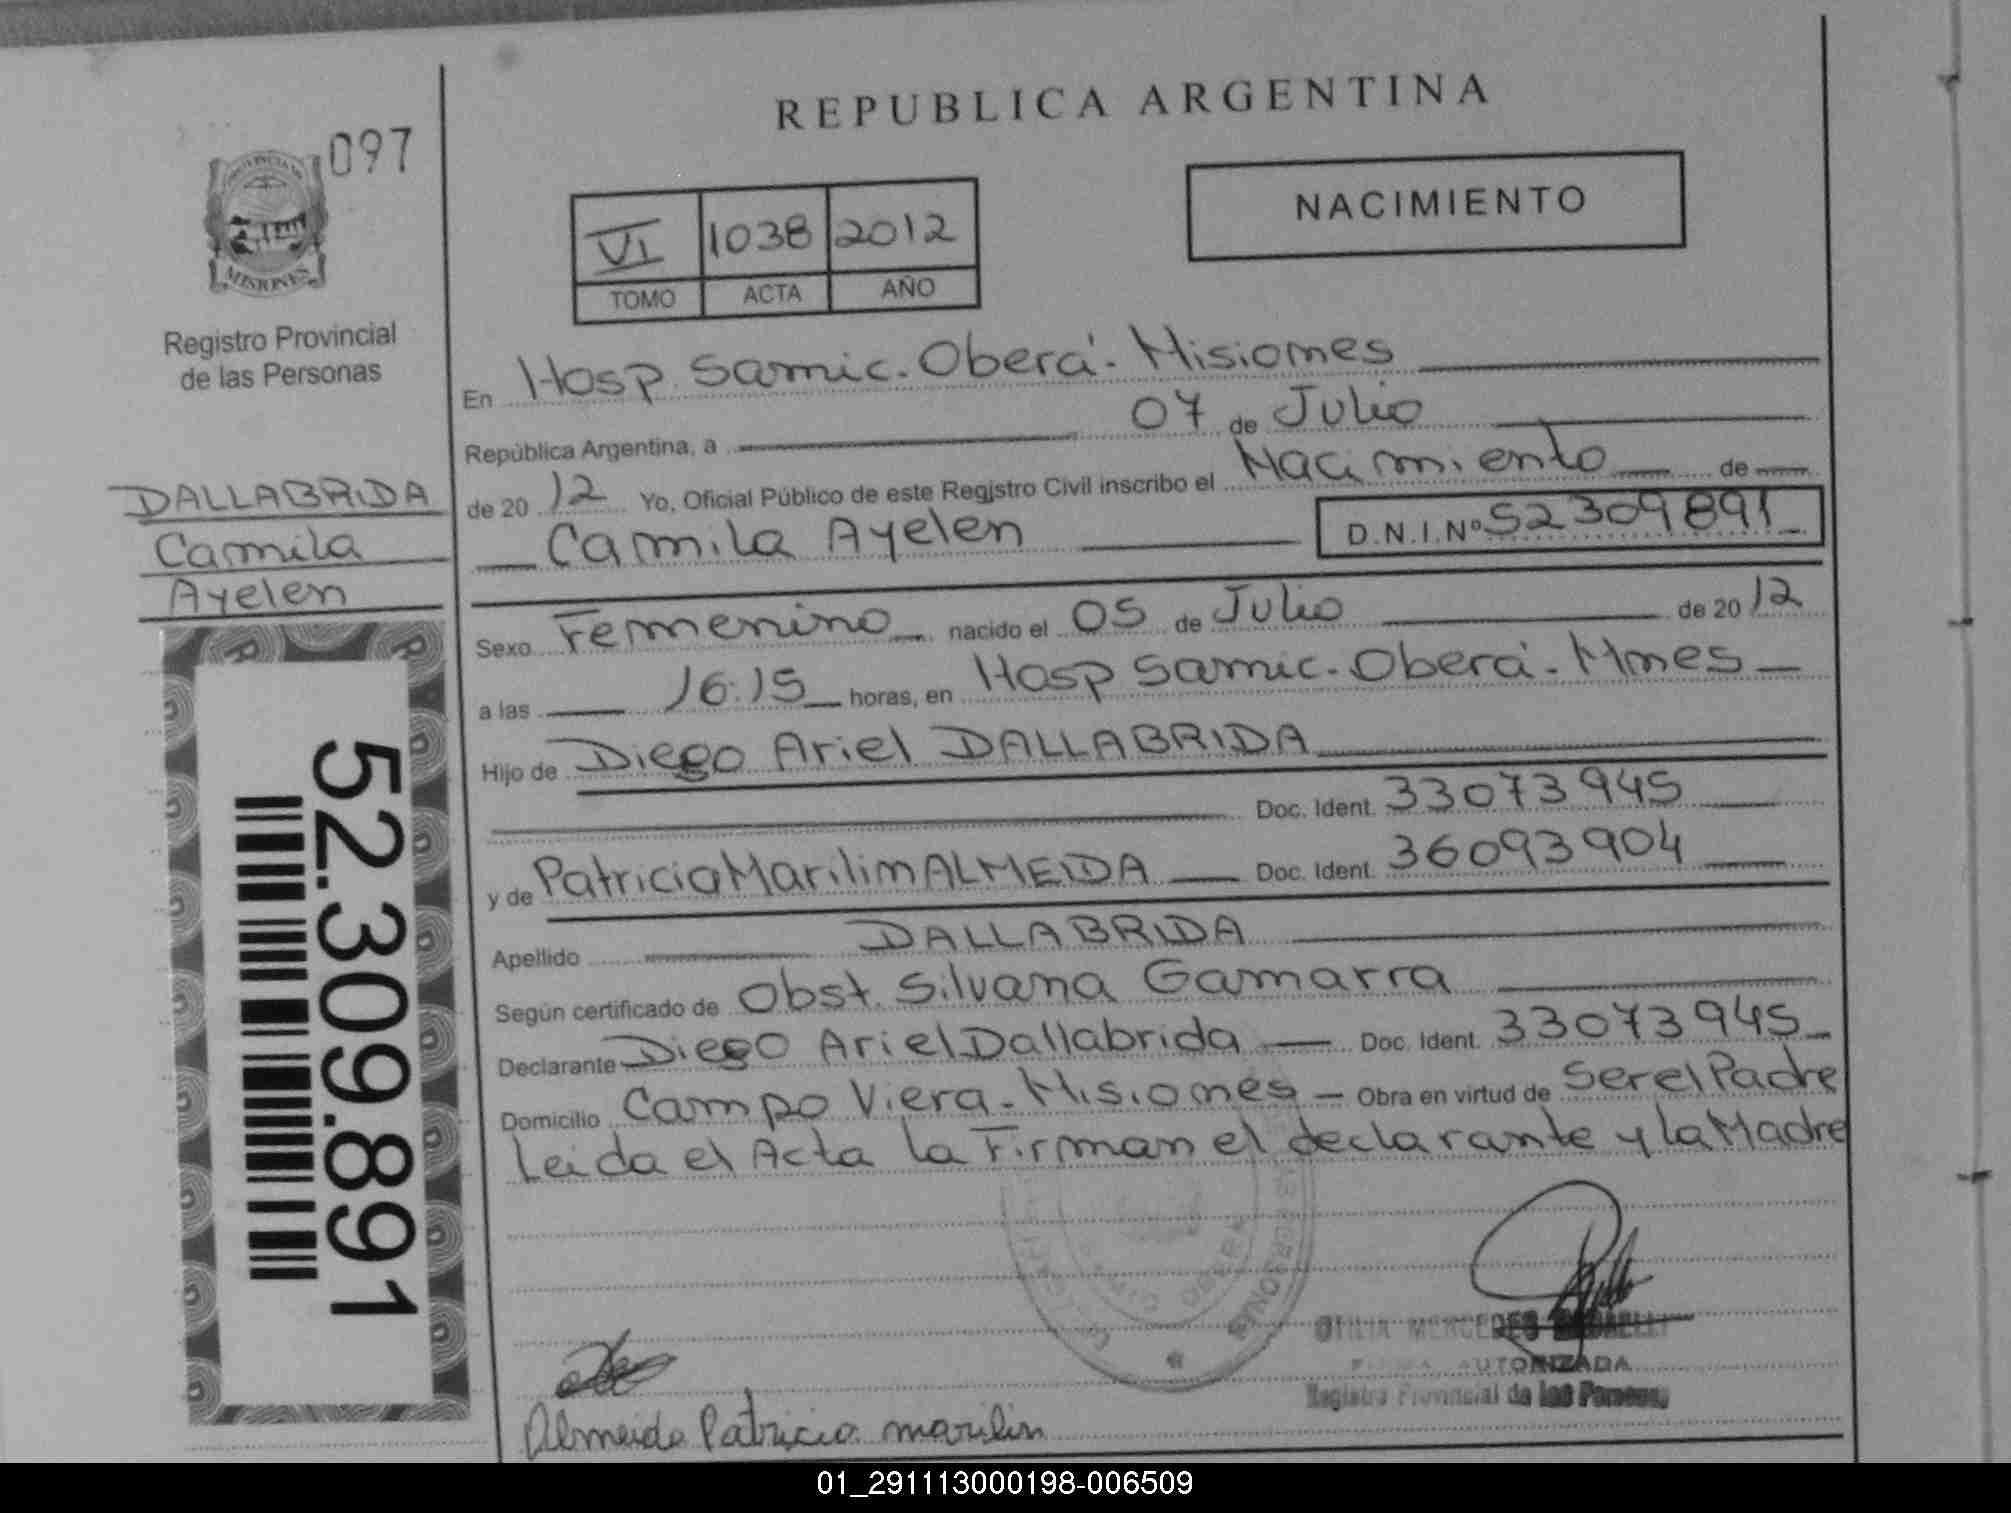 REPUBLICA ARGENTINA
097
PROVINCIA DE
MISIONES
Registro Provincial
de las Personas
NACIMIENTO
VI 1038 2012
TOMO ACTA AÑO
En Hosp. Samic. Oberá. Misiones
República Argentina, a 07 de Julio
de 20 12 Yo, Oficial Público de este Registro Civil inscribo el Nacimiento de
Camila Ayelen D.N.I.Nº 52309891
DALLABRIDA
Camila
Ayelen
52.309.891
Sexo Femenino nacido el 05 de Julio de 20 12
a las 16:15 horas, en Hosp Samic. Oberá. Mnes
Hijo de Diego Ariel DALLABRIDA
Doc. Ident. 33073945
y de Patricia Marilin ALMEIDA Doc. Ident. 36093904
Apellido DALLABRIDA
Según certificado de Obst. Silvana Gamarra
Declarante Diego Ariel Dallabrida Doc. Ident. 33073945
Domicilio Campo Viera. Misiones Obra en virtud de Ser el Padre
Leida el Acta la Firman el declarante y la Madre
OBERA
OTILIA MERCEDES
AUTORIZADA
Registro Provincial de las Personas
Almeida Patricia marilin
01_291113000198-006509